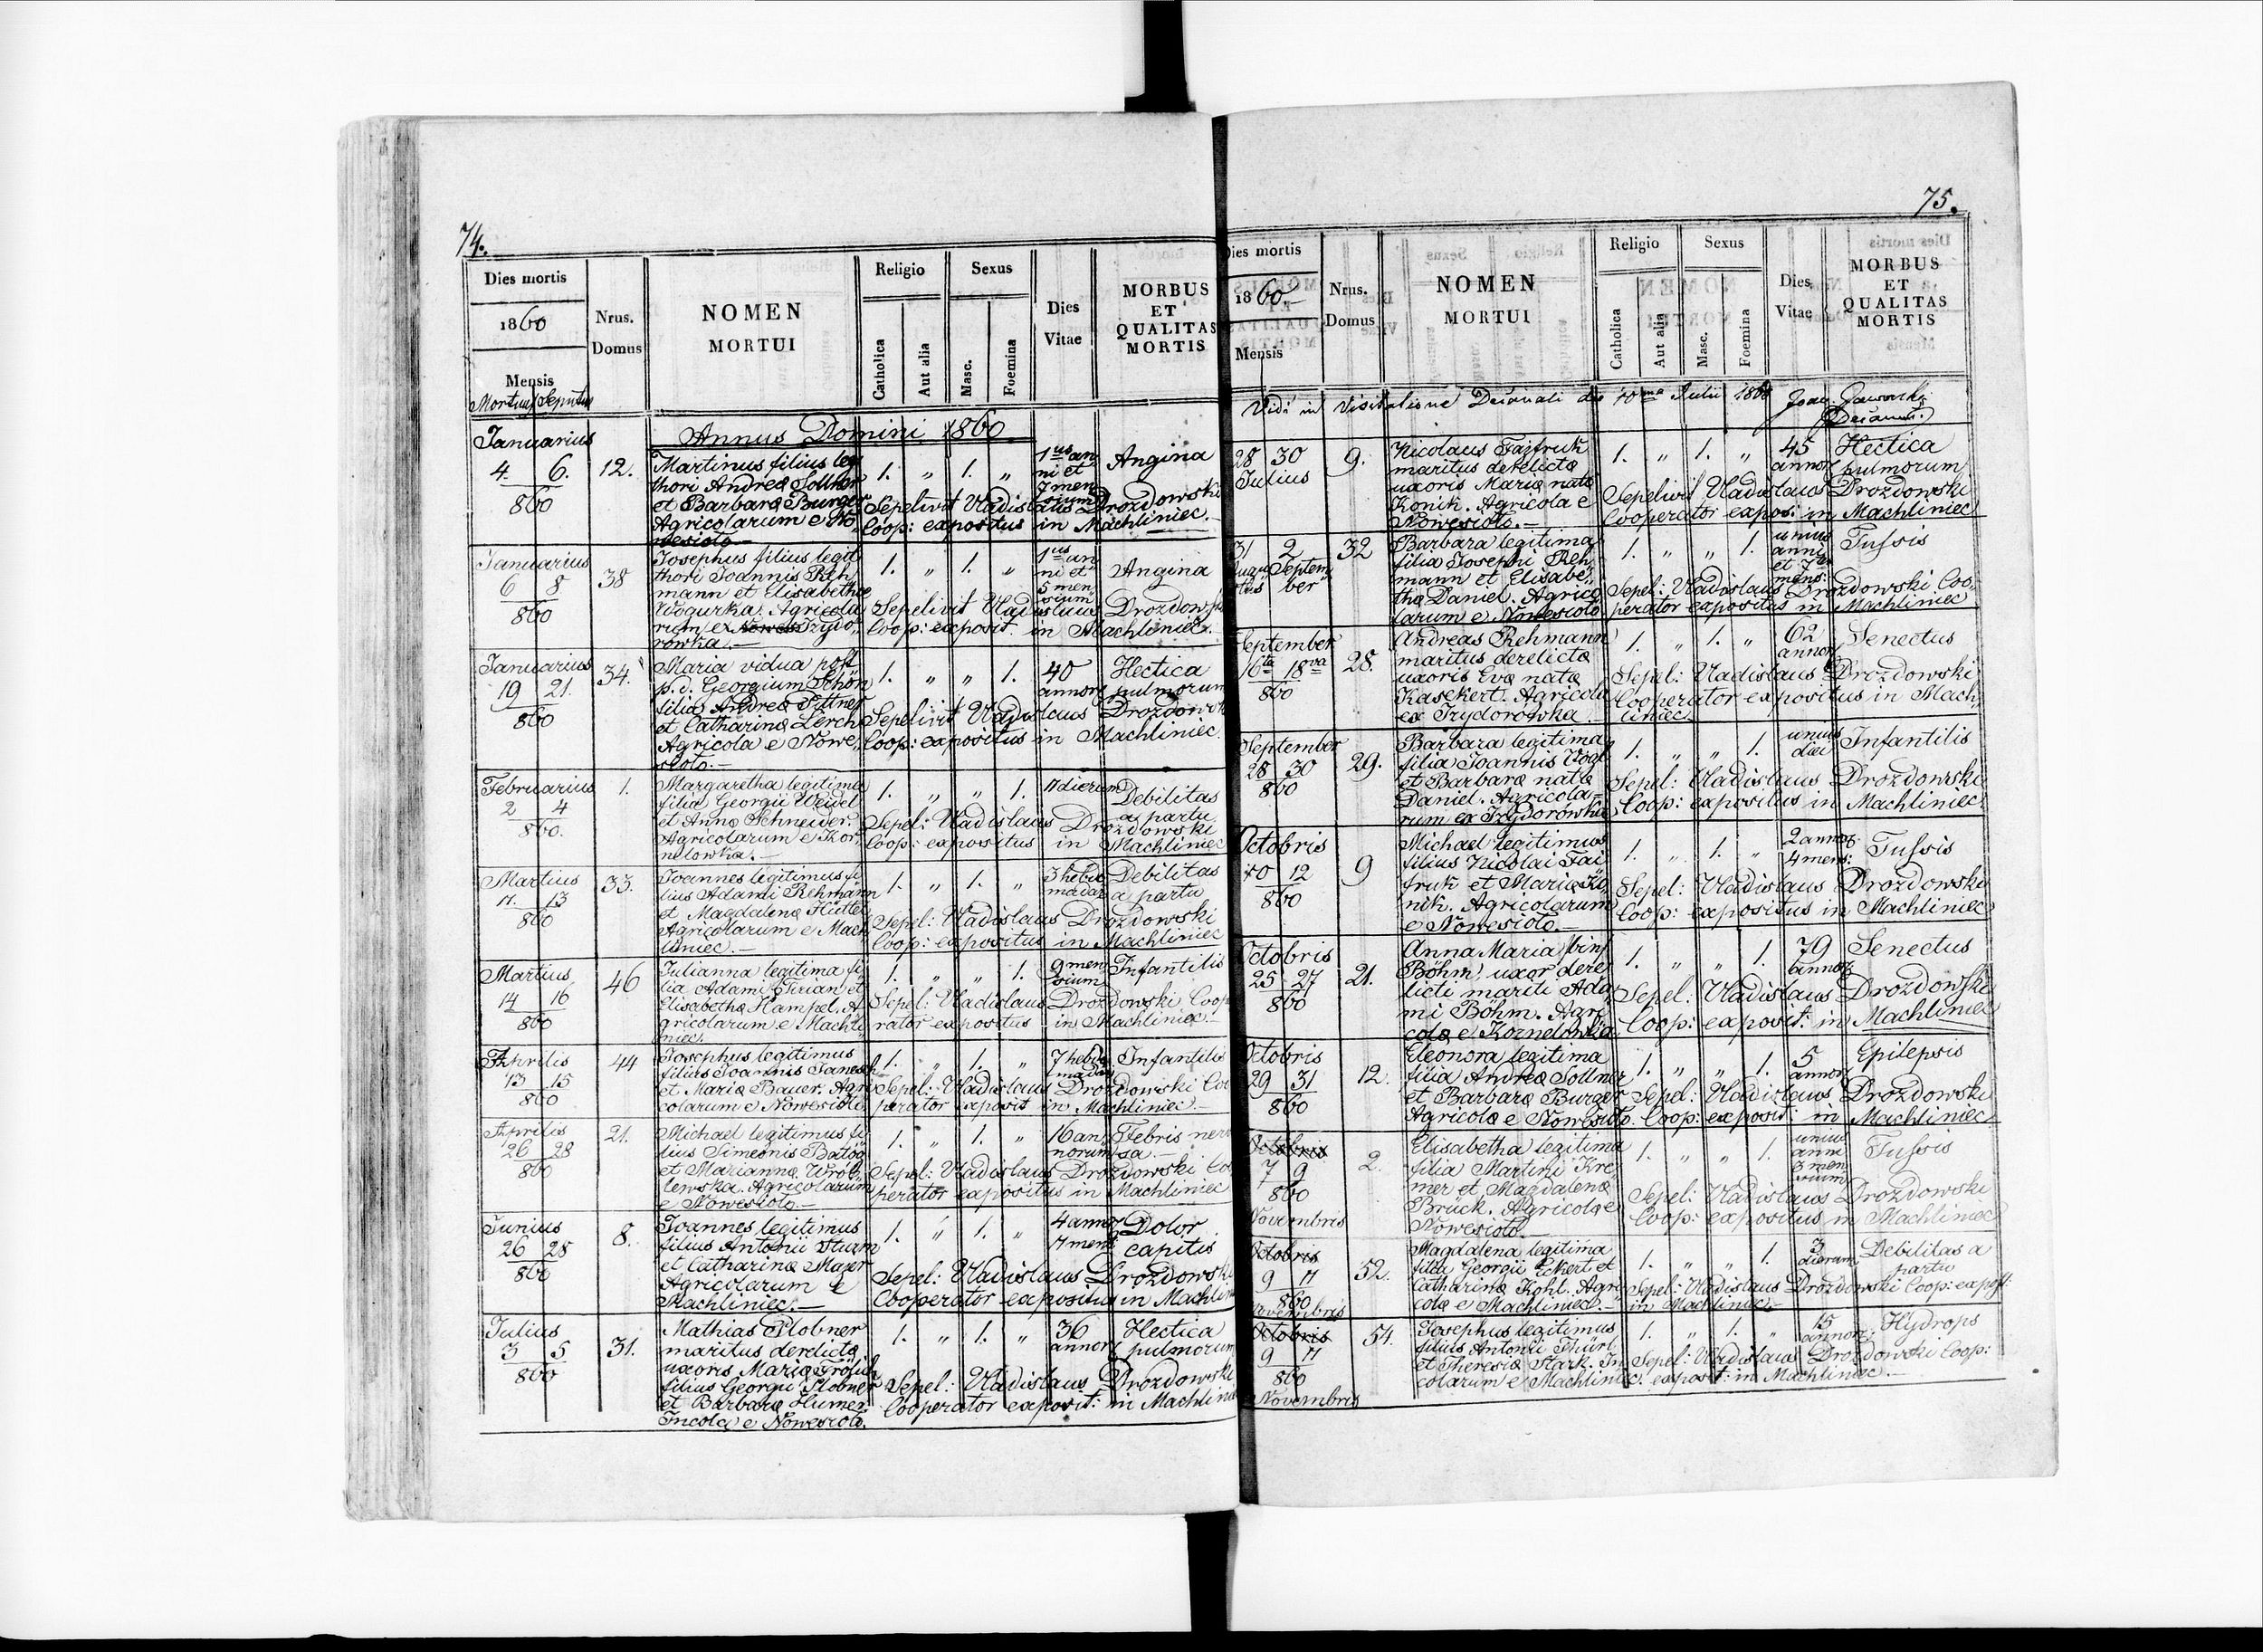 74.
Dies mortis
1860
Mensis
Mortuus Sepultus
Nrus.
Domus
NOMEN
MORTUI
Religio
Catholica
Aut alia
Sexus
Masc.
Foemina
Dies
Vitae
MORBUS
ET
QUALITAS
MORTIS
Annus Domini 1860
Januarius
4. 6.
860
12.
Martinus filius legi
thori Andreæ Sollner
et Barbaræ Burger
Agricolarum e No,,
wesioło.—
1. „ 1. „
1us an
ni et
7 men
sium
Angina
Sepelivit Vladislaus Drozdowski
Coop: expositus in Machliniec.
Januarius
6 8
860
38
Josephus filius legit
thori Joannis Reh
mann et Elisabethæ
Wogurka. Agricola
rum ex Nowes Izydo,,
rowka.—
1. „ 1. „
1us an
ni et
5 men
sium
Angina
Sepelivit Vladislaus Drozdow
Coop: exposit. in Machliniec.
Januarius
19 21.
860
34.
Maria vidua post
p. d. Georgium Schön
filia Andreæ Sittner
et Catharinæ Lerch
Agricola e Nowe,,
sioło.—
1. „ „ 1.
40
annor
Hectica
pulmorum
Sepelivit Vladislaus Drozdowsk
Coop: expositus in Machliniec.
Februarius
2 4
860.
1.
Margaretha legitima
filia Georgii Weidel
et Annæ Schneider.
Agricolarum e Kor,,
nelowka.—
1. „ „ 1.
11 dierum
Debilitas
a partu
Sepel: Vladislaus Drozdowski
Coop: expositus in Machliniec
Martius
11. 13
860
33.
Joannes legitimus fi
lius Adami Rehmann
et Magdalenæ Hüttel
Agricolarum e Mach
liniec.—
1. „ 1. „
3 hebdo
madar
Debilitas
a partu
Sepel: Vladislaus Drozdowski
Coop: expositus in Machliniec
Martius
14 16
860
46
Julianna legitima fi
lia Adami Tirian et
Elisabethæ Hampel. A
gricolarum e Machli
niec.
1. „ „ 1.
9 men
sium
Infantilis
Sepel: Vladislaus Drozdowski Coop
rator expositus in Machliniec.
Aprilis
13 15
860
44
Josephus legitimus
filius Joannis Janesch
et Mariæ Bauer. Agri
colarum e Nowesioło
1. „ 1. „
7 hebdo
madar
Infantilis
Sepel: Vladislaus Drozdowski Coo
perator exposit in Machliniec.—
Aprilis
26 28
860
21.
Michael legitimus fi
lius Simeonis Batog
et Mariannæ Wrób
lewska. Agricolarum
e Nowesioło.—
1. „ 1. „
16 an,
norum
Febris nervo
sa.—
Sepel: Vladislaus Drozdowski Coo
perator expositus in Machliniec
Junius
26 28
860
8.
Joannes legitimus
filius Antonii Sturm
et Catharinæ Majer
Agricolarum e
Machliniec.—
1. „ 1. „
4 annor
7 mens
Dolor
capitis
Sepel: Vladislaus Drozdowsk
Cooperator expositus in Machlin
Julius
3 5
860
31.
Mathias Plobner
maritus derelictæ
uxoris Mariæ Frölich
filius Georgii Plobner
et Barbaræ Humer.
Incola e Nowesioło.
1. „ 1. „
36
annor
Hectica
pulmorum
Sepel: Vladislaus Drozdowski
Cooperator exposit: in Machlinie
75.
Dies mortis
1860
Mensis
Nrus.
Domus
NOMEN
MORTUI
Religio
Catholica
Aut alia
Sexus
Masc.
Foemina
Dies
Vitae
MORBUS
ET
QUALITAS
MORTIS
Vidi in Visitatione Decanali die 10ma Julii 1860
Decanus
28 30
Julius
9.
Nicolaus Fajfruk
maritus derelictæ
uxoris Mariæ natæ
Konik. Agricola e
Nowesioło.—
1. „ 1. „
45
annor
Hectica
pulmorum
Sepelivit Vladislaus Drozdowski
Cooperator expos: in Machliniec
31 2
Augu Septem
stus ber
32
Barbara legitima
filia Josephi Reh
mann et Elisabe,,
thæ Daniel. Agrico
larum e Nowesioło
1. „ „ 1.
unius
anni
et 7
mens:
Tussis
Sepel: Vladislaus Drozdowski Coo,
perator expositus in Machliniec
September
16ta 18va
860
28.
Andreas Rehmann
maritus derelictæ
uxoris Evæ natæ
Kasekert. Agricola
ex Izydorowka.
1. „ 1. „
62
annor
Senectus
Sepel: Vladislaus Drozdowski
Cooperator expositus in Mach,
liniec.
September
28 30
860
29.
Barbara legitima
filia Joannis Vogl
et Barbaræ natæ
Daniel. Agricola=
rum ex Izydorowka
1. „ „ 1.
unius
diei
Infantilis
Sepel: Vladislaus Drozdowski
Coop: expositus in Machliniec
Octobris
10 12
860
9
Michael legitimus
filius Nicolai Fai
fruk et Mariæ Ko
nik. Agricolarum
e Nowesioło.—
1. „ 1. „
2 annor
4 mens:
Tussis
Sepel: Vladislaus Drozdowski
Coop: expositus in Machliniec
Octobris
25 27
860
21.
Anna Maria bin
Böhm, uxor dere
licti mariti Ada
mi Böhm. Agri
colæ e Kornelowka
1. „ „ 1.
79
annor
Senectus
Sepel: Vladislaus Drozdowski
Coop: exposit: in Machliniec
Octobris
29 31
860
12.
Eleonora legitima
filia Andreæ Sollner
et Barbaræ Burger
Agricolæ e Nowesioło.
1. „ „ 1.
5
annor
Epilepsis
Sepel: Vladislaus Drozdowski
Coop: exposit: in Machliniec
Octobris
7 9
860
Novembris
2.
Elisabetha legitima
filia Martini Kre
mer et Magdalenæ
Brück. Agricolæ e
Nowesioło.—
1. „ „ 1.
unius
anni
3 men
sium
Tussis
Sepel: Vladislaus Drozdowski
Coop: expositus in Machliniec
Octobris
9 11
860
Novembris
52.
Magdalena legitima
filia Georgii Eckert et
Catharinæ Kohl. Agri
colæ e Machliniec.—
1. „ „ 1.
3
dierum
Debilitas a
partu
Sepel: Vladislaus Drozdowski Coop: expost:
in Machliniec.—
Octobris
9 11
860
Novembris
54.
Josephus legitimus
filius Antonii Thürl
et Theresiæ Stark. In
colarum e Machliniec.
1. „ 1. „
15
annor:
Hydrops
Sepel: Vladislaus Drozdowski Coop:
exposit: in Machliniec.—